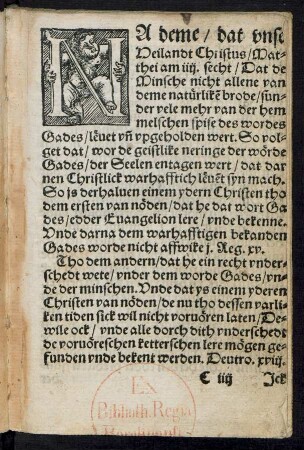 NA deme / dat vnse
Heilandt Christus / Mat-
thei am iiij. secht / Dat de
Minsche nicht allene van
deme natürlikē brode / sün-
der vele mehr van der hem
melschen spise des wordes
Gades / leuet vñ vpgeholden wert. So vol-
get dat / wor de geistlike neringe der wörde
Gades / der Seelen entagen wert / dat dar
nen Christlick warhafftich leuēt syn mach.
So js derhaluen einem ydern Christen tho
dem ersten van nöden / dat he dat wort Ga
des / edder Euangelion lere / vnde bekenne.
Vnde darna dem warhafftigen bekanden
Gades worde nicht affwike j. Reg. xv.
Tho dem andern / dat he ein recht vnder-
schedt wete / vnder dem worde Gades / vn-
de der minschen. Vnde dat ys einem yderen
Christen van nöden / de nu tho dessen varli-
ken tiden sick wil nicht voruören laten / De-
wile ock / vnde alle dorch dith vnderschedt
de voruöreschen ketterschen lere mögen ge-
funden vnde bekent werden. Deutro. xviij.
C iij Jck
EX
Biblioth. Regia